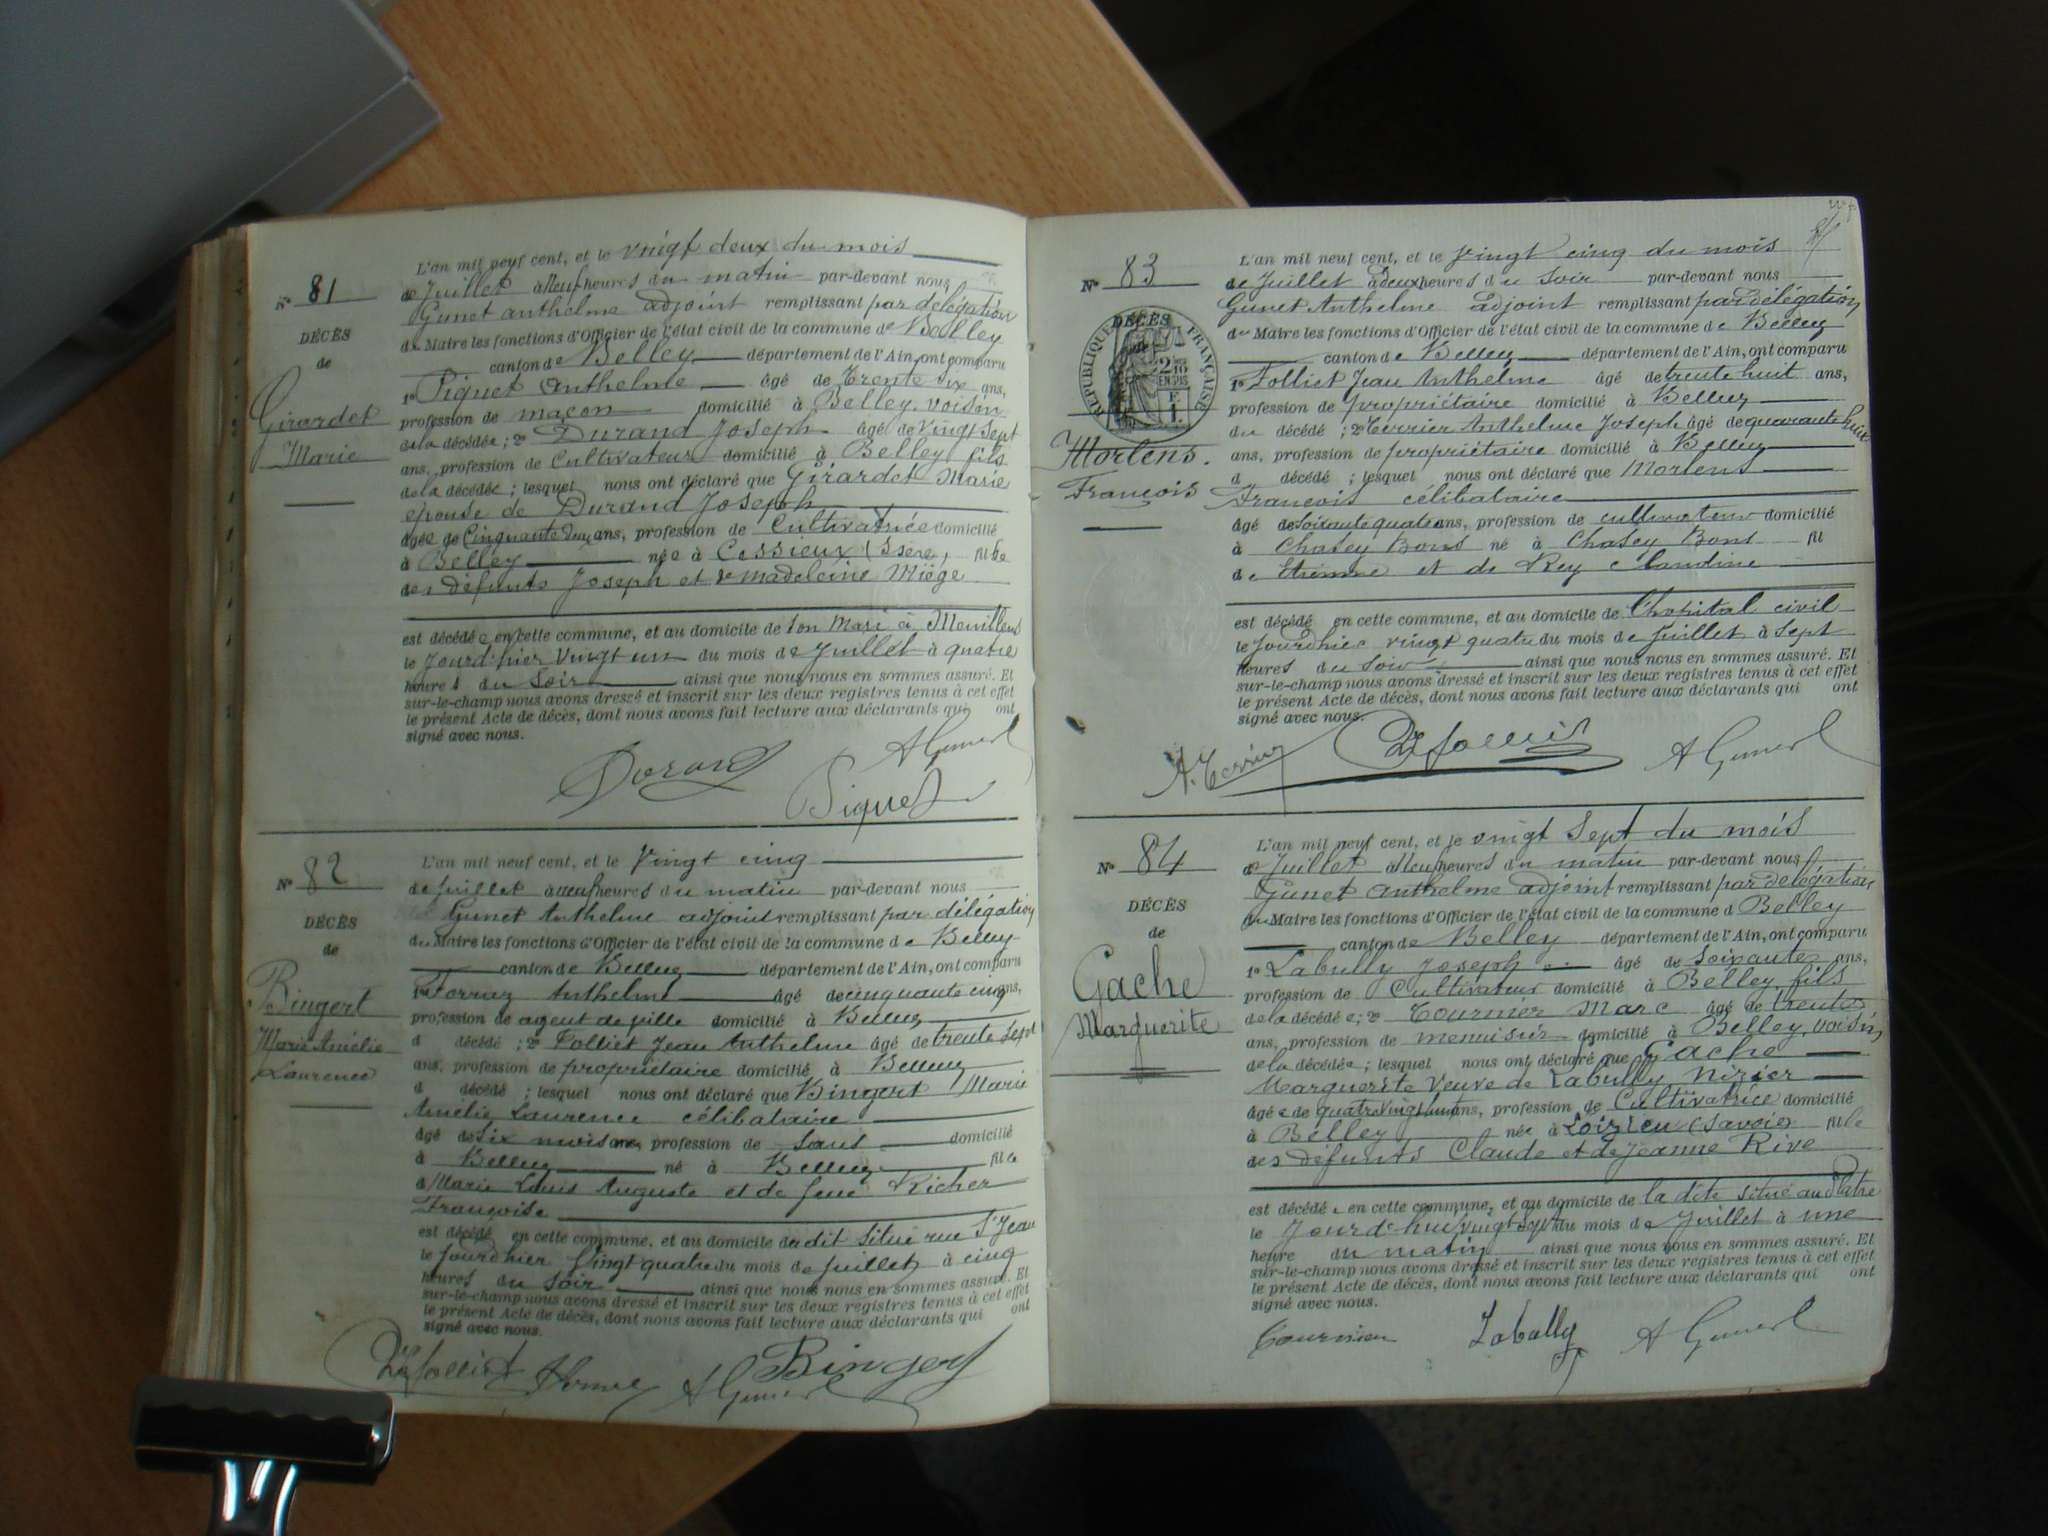 L'an mil neuf cent, et le vingt deux du mois
N° 81
de Juillet à Neuf heures du matin par-devant nous
Gunet Anthelme adjoint remplissant par délégation
DÉCÈS
du Maire les fonctions d'Officier de l'état civil de la commune de Belley
de
canton de Belley département de l'Ain, ont comparu
1° Piquet Anthelme âgé de trente six ans,
Girardet
profession de maçon domicilié à Belley, voisin
Marie
de la décédée ; 2° Durand Joseph âgé de vingt sept
ans, profession de Cultivateur domicilié à Belley fils
de la décédée ; lesquels nous ont déclaré que Girardet Marie
épouse de Durand Joseph
âgée de Cinquante deux ans, profession de Cultivatrice domicilié
à Belley née à Cessieux (Isère) fille
des défunts Joseph et de Madeleine Miège
est décédée en cette commune, et au domicile de son mari à
le Jourd'hier vingt un du mois de Juillet à quatre
heures du Soir ainsi que nous nous en sommes assuré. Et
sur-le-champ nous avons dressé et inscrit sur les deux registres tenus à cet effet
le présent Acte de décès, dont nous avons fait lecture aux déclarants qui ont
signé avec nous.
A Gunet
Durand
Piquet
L'an mil neuf cent, et le Vingt cinq
N° 82
de Juillet à neuf heures du matin par-devant nous
Gunet Anthelme adjoint remplissant par délégation
DÉCÈS
du Maire les fonctions d'Officier de l'état civil de la commune de Belley
de
canton de Belley département de l'Ain, ont comparu
1° Anthelme âgé de cinquante cinq ans,
Bingert
profession de agent de ville domicilié à Belley
Marie Amélie
d décédé ; 2° Folliet Jean Anthelme âgé de trente sept
Laurence
ans, profession de propriétaire domicilié à Belley
d décédé ; lesquel nous ont déclaré que Bingert Marie
Amélie Laurence célibataire
âgé de Six mois ans, profession de Sans domicilié
à Belley né à Belley fille
de Marie Louis Auguste et de feue Richer
Françoise
est décédé en cette commune, et au domicile du dit situé rue St Jean
le Jourdhier Vingt quatre du mois de Juillet à cinq
heures du Soir ainsi que nous nous en sommes assuré. Et
sur-le-champ nous avons dressé et inscrit sur les deux registres tenus à cet effet
le présent Acte de décès, dont nous avons fait lecture aux déclarants qui ont
signé avec nous.
A Gunet Bingert
L'an mil neuf cent, et le Vingt cinq du mois
N° 83
de Juillet à deux heures du soir par-devant nous
Gunet Anthelme adjoint remplissant par délégation
DÉCÈS
RÉPUBLIQUE FRANÇAISE
du Maire les fonctions d'Officier de l'état civil de la commune de Belley
canton de Belley département de l'Ain, ont comparu
1° Folliet Jean Anthelme âgé de trente huit ans,
profession de propriétaire domicilié à Belley
du décédé ; 2° Terrier Anthelme Joseph âgé de quarante huit
Mortens.
ans, profession de propriétaire domicilié à Belley
François
d décédé ; lesquel nous ont déclaré que Mortens
François célibataire
âgé de soixante quatre ans, profession de cultivateur domicilié
à Chasey Bons né à Chasey Bons fil
de Etienne et de Rey Claudine
est décédé en cette commune, et au domicile de l'hopital civil
le Jourdhier vingt quatre du mois de Juillet à sept
heures du soir ainsi que nous nous en sommes assuré. Et
sur-le-champ nous avons dressé et inscrit sur les deux registres tenus à cet effet
le présent Acte de décès, dont nous avons fait lecture aux déclarants qui ont
signé avec nous.
A. Terrier A Gunet
L'an mil neuf cent, et le vingt sept du mois
N° 84
de Juillet à Neuf heures du matin par-devant nous
Gunet Anthelme adjoint remplissant par délégation
DÉCÈS
du Maire les fonctions d'Officier de l'état civil de la commune d Belley
de
canton de Belley département de l'Ain, ont comparu
1° Labully Joseph âgé de soixante ans,
Gache
profession de Cultivateur domicilié à Belley, fils
Marguerite
de la décédée ; 2° Tournier Marc âgé de trente
ans, profession de menuisier domicilié à Belley, voisin
de la décédée ; lesquel nous ont déclaré que Gache
Marguerite Veuve de Labully Nizier
âgée de quatre vingt ans, profession de Cultivatrice domicilié
à Belley née à Loizieu (Savoie) fille
des défunts Claude et de Jeanne Rive
est décédée en cette commune, et au domicile de la dite situé
le Jourd'hui vingt Sept du mois de Juillet à une
heure du matin ainsi que nous nous en sommes assuré. Et
sur-le-champ nous avons dressé et inscrit sur les deux registres tenus à cet effet
le présent Acte de décès, dont nous avons fait lecture aux déclarants qui ont
signé avec nous.
Tournier Labully A Gunet